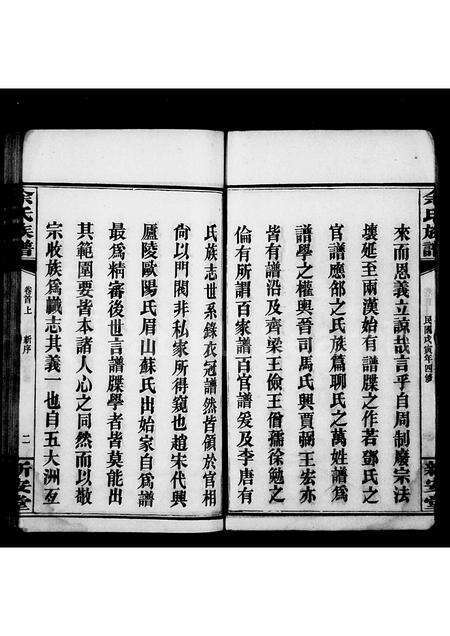 余氏族譜
民國戊寅年四修
新安堂
來而恩義立諒哉言乎自周制廢宗法
壞延至兩漢始有譜牒之作若鄧氏之
官譜應邵之氏族篇聊氏之萬姓譜爲
譜學之權輿晉司馬氏興賈弼王宏亦
皆有譜沿及齊梁王儉王僧孺徐勉之
倫有所謂百家譜百官譜爰及李唐有
氏族志世系錄衣冠譜然皆領於官相
尙以門閥非私家所得窺也趙宋代興
廬陵歐陽氏眉山蘇氏出始家自爲譜
最爲精審後世言譜牒學者皆莫能出
其範圍要皆本諸人心之同然而以敬
宗收族爲幟志其義一也自五大洲互
余氏族譜
卷首上
新序
二
新安堂